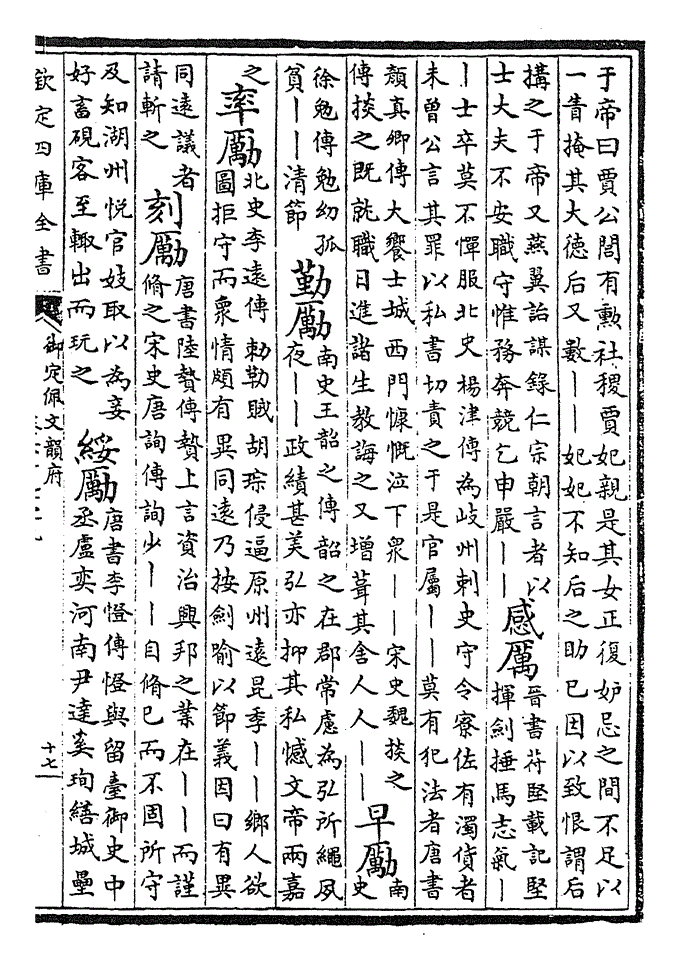 于帝曰賈公閭有勲社稷賈妃親是其女正復妒忌之間不足以
一眚掩其大德后又數――妃妃不知后之助己因以致恨謂后
搆之于帝又燕翼詒謀錄仁宗朝言者以
士大夫不安職守惟務奔競乞申嚴――
感厲
晉書苻堅載記堅
揮劍捶馬志氣―
―士卒莫不憚服北史楊津傳為岐州刺史守令寮佐有濁貨者
未曾公言其罪以私書切責之于是官屬――莫有犯法者唐書
顔真卿傳大饗士城西門慷慨泣下衆――宋史魏掞之
傳掞之既就職日進諸生教誨之又增葺其舍人人――
早勵
南
史
徐勉傳勉幼孤
貧――清節
勤勵
南史王韶之傳韶之在郡常慮為弘所繩夙
夜――政績甚美弘亦抑其私憾文帝兩嘉
之
率勵
北史李遠傳勅勒賊胡琮侵逼原州遠昆季――鄉人欲
圖拒守而衆情頗有異同遠乃按劍喻以節義因曰有異
同遠議者
請斬之
刻勵
唐書陸贄傳贄上言資治興邦之業在――而謹
脩之宋史唐詢傳詢少――自脩已而不固所守
及知湖州悅官妓取以為妾
好畜硯客至輙出而玩之
綏勵
唐書李憕傳憕與留臺御史中
丞盧奕河南尹達奚珣繕城壘
欽定四庫全書
御定佩文韻府
十七